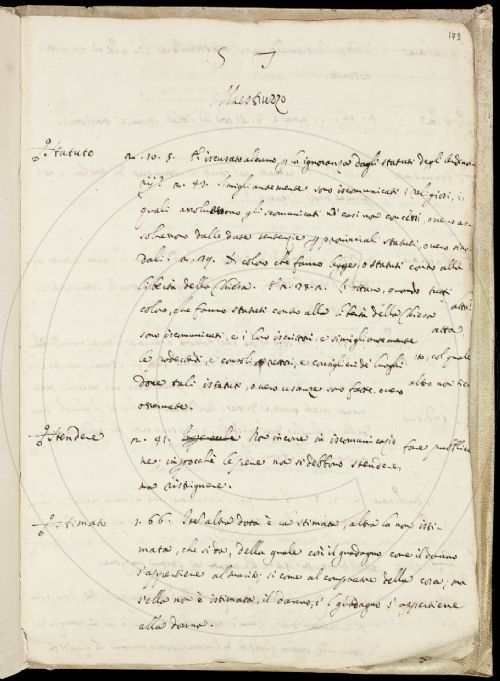 173
S T
Maestruzzo
Statuto n. 10. 3. È iscusato alcuno, la ignoranza degli statuti degli Ordina-
rij? n. 43. Simigliantemente sono iscomunicati i religiosi, i
quali assolvettono gli scomunicati ne' casi non conceduti, overo as-
solverono dalle date sentenzie provinciali statuti, overo sino-
dali. n. 29. Di coloro che fanno legge, o statuti contro alla
libertà della Chiesa. E n. 28. L'ottavo, quando tutti
coloro, che fanno statuti contro alla libertà della Chiesa
sono iscomunicati, e i loro iscrittori: e simigliantemente
le podestadi, e consoli, rettori, e consiglieri de' luoghi
dove tali istatuti, overo usanze sono fatte, overo
osservate.
Stendere n. 41. Non incorre in iscomunicazio-
ne; imperocchè le pene non si debbono stendere,
ma ristrignere.
Stimato 1. 66. altra dota è istimata, altra la non isti-
mata, che si dà, della quale così il guadagno come il danno
s'appartiene al marito, sì come al comperatore della cosa; ma
s'ella non è istimata, il danno, e 'l guadagno s'appartiene
alla donna.